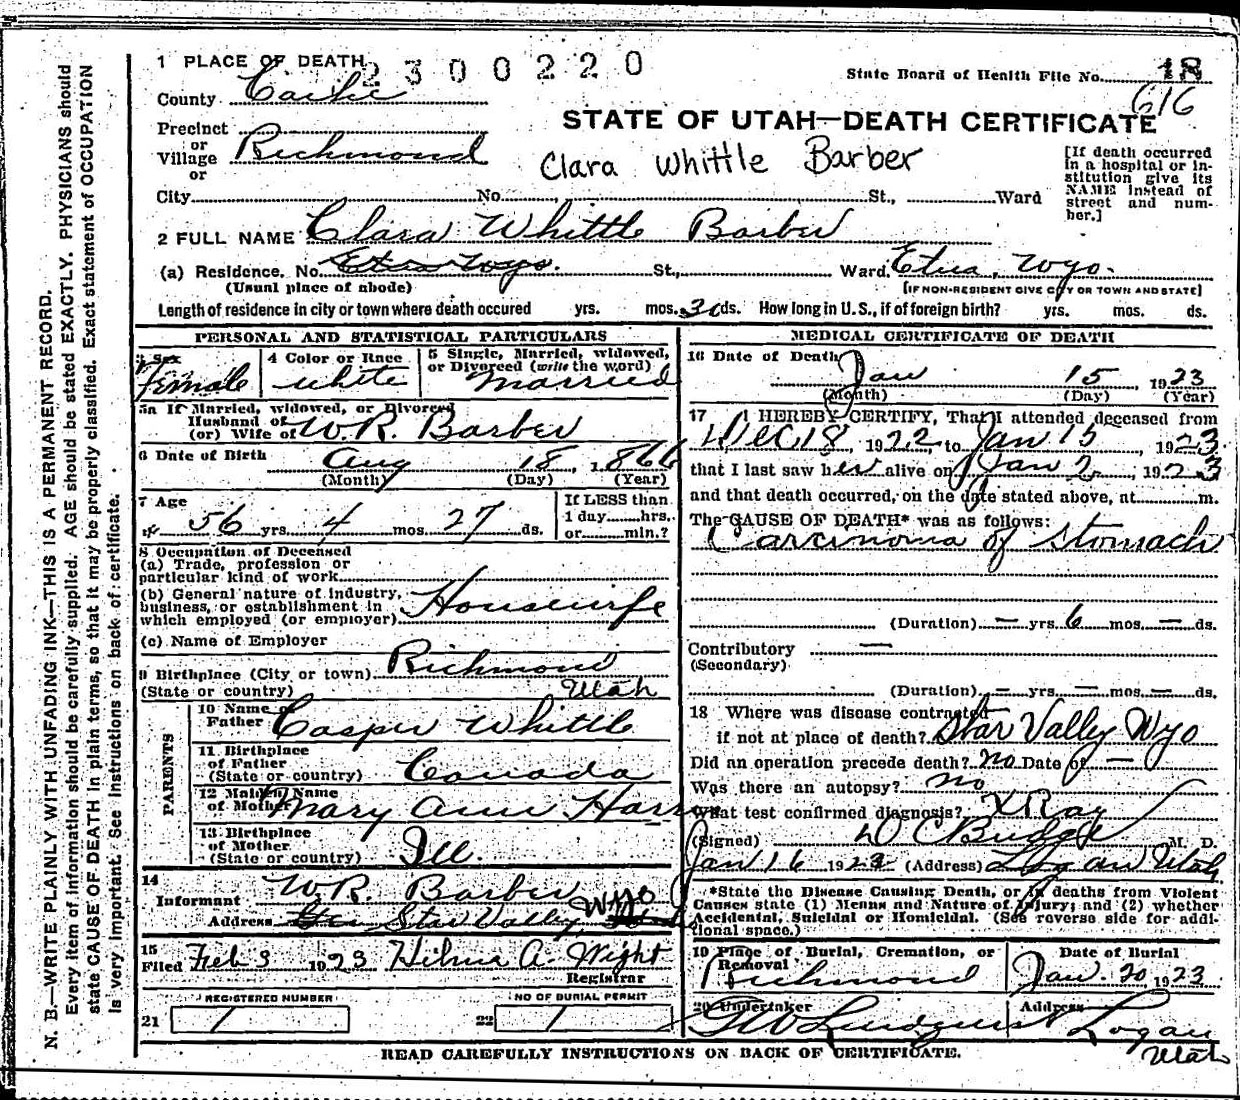 1 PLACE OF DEATH
2300220
State Board of Health File No. 18
616
County Cache
STATE OF UTAH—DEATH CERTIFICATE
Precinct
or
Village Richmond
or
Clara Whittle Barber
[If death occurred
in a hospital or in-
stitution give its
NAME instead of
street and num-
ber.]
City No. St., Ward
2 FULL NAME Clara Whittle Barber
(a) Residence. No. Etna Wyo. St., Ward. Etna, Wyo.
(Usual place of abode) [IF NON-RESIDENT GIVE CITY OR TOWN AND STATE]
Length of residence in city or town where death occured yrs. mos. ds. How long in U.S., if of foreign birth? yrs. mos. ds.
PERSONAL AND STATISTICAL PARTICULARS
3 Sex
Female
4 Color or Race
white
5 Single, Married, widowed,
or Divorced (write the word)
Married
5a If Married, widowed, or Divorced
Husband of
(or) Wife of W.R. Barber
6 Date of Birth Aug 18, 1866
(Month) (Day) (Year)
7 Age
56 yrs. 4 mos. 27 ds.
If LESS than
1 day hrs.
or min.?
8 Occupation of Deceased
(a) Trade, profession or
particular kind of work
(b) General nature of industry,
business, or establishment in
which employed (or employer) Housewife
(c) Name of Employer
9 Birthplace (City or town) Richmond
(State or country) Utah
PARENTS
10 Name of
Father Casper Whittle
11 Birthplace
of Father
(State or country) Canada
12 Maiden Name
of Mother Mary Ann Harris
13 Birthplace
of Mother
(State or country) Ill.
14
Informant W.R. Barber
Address Star Valley, Wyo
15
Filed Feb 3 1923 Hilma A. Wight
Registrar
REGISTERED NUMBER
21 1
NO OF BURIAL PERMIT
22 1
MEDICAL CERTIFICATE OF DEATH
16 Date of Death
Jan 15, 1923
(Month) (Day) (Year)
17 I HEREBY CERTIFY, That I attended deceased from
Dec 18 1922, to Jan 15, 1923
that I last saw her alive on Jan 2, 1923
and that death occurred, on the date stated above, at m.
The CAUSE OF DEATH* was as follows:
Carcinoma of Stomach
(Duration) — yrs. 6 mos. — ds.
Contributory —
(Secondary)
(Duration) — yrs. — mos. — ds.
18 Where was disease contracted
if not at place of death? Star Valley Wyo
Did an operation precede death? no Date of —
Was there an autopsy? no
What test confirmed diagnosis? X Ray
(Signed) D C Budge M. D.
Jan 16 1923 (Address) Logan Utah
*State the Disease Causing Death, or in deaths from Violent
Causes state (1) Means and Nature of Injury; and (2) whether
Accidental, Suicidal or Homicidal. (See reverse side for addi-
tional space.)
19 Place of Burial, Cremation, or
Removal
Richmond
Date of Burial
Jan. 20, 1923
20 Undertaker
Lindquist
Address
Logan
Utah
READ CAREFULLY INSTRUCTIONS ON BACK OF CERTIFICATE.
N. B.—WRITE PLAINLY WITH UNFADING INK—THIS IS A PERMANENT RECORD.
Every item of information should be carefully supplied. AGE should be stated EXACTLY. PHYSICIANS should
state CAUSE OF DEATH in plain terms, so that it may be properly classified. Exact statement of OCCUPATION
is very important. See instructions on back of certificate.